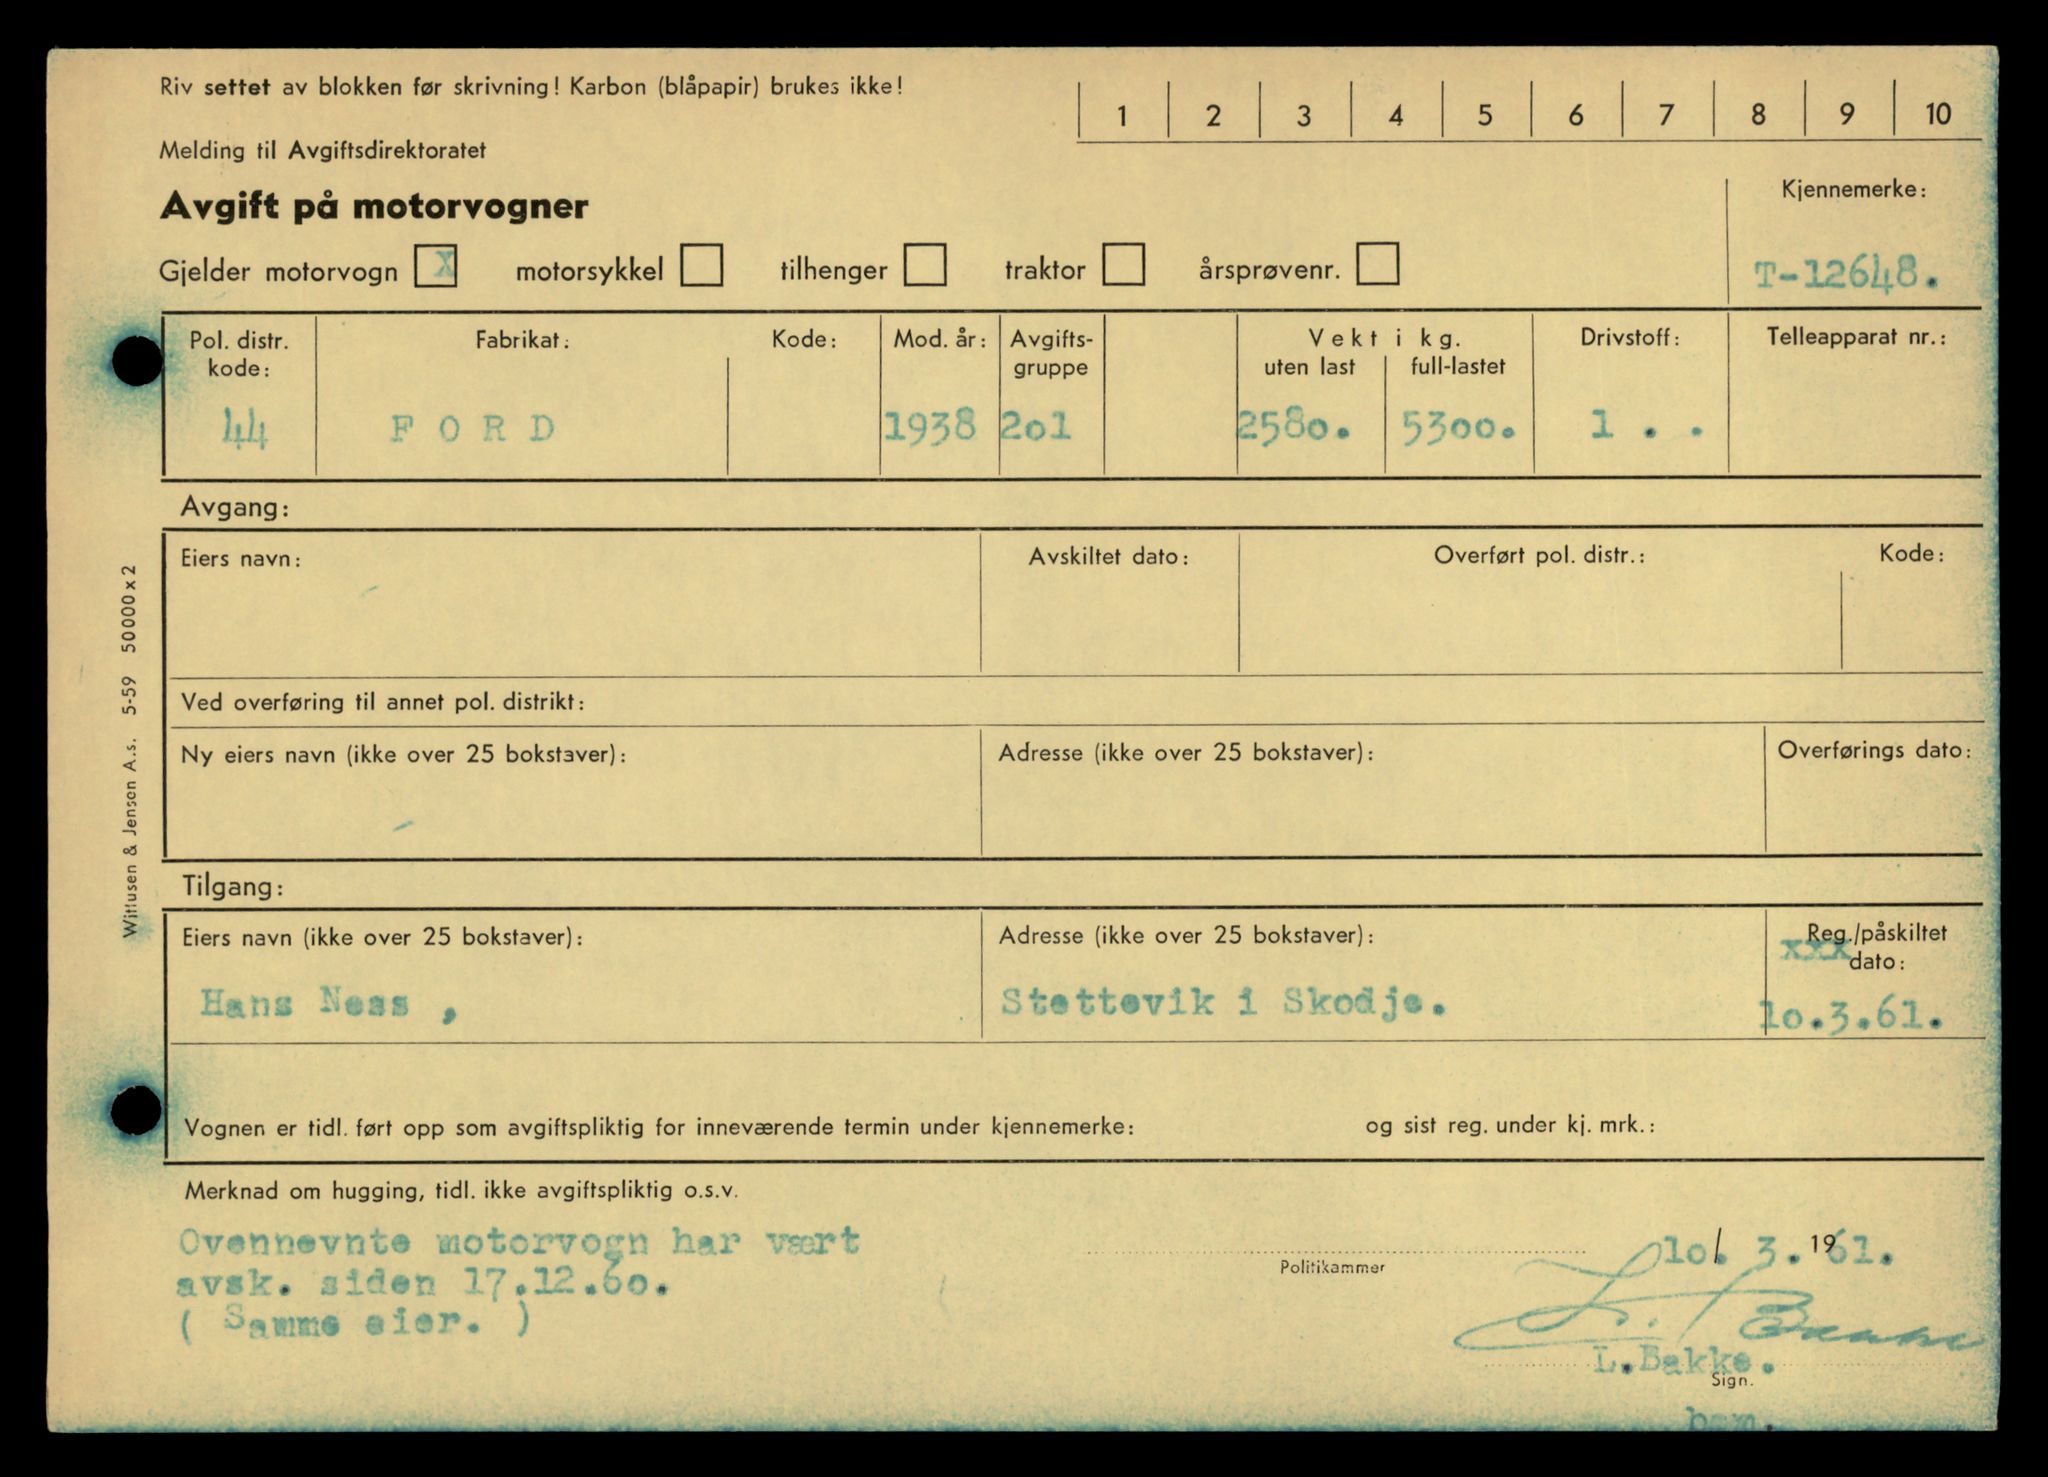 Riv settet av blokken før skrivning! Karbon (blåpapir) brukes ikke!
1 2 3 4 5 6 7 8 9 10
Melding til Avgiftsdirektoratet
Avgift på motorvogner
Kjennemerke:
Gjelder motorvogn X motorsykkel tilhenger traktor årsprøvenr.
T-12648.
Pol. distr. kode: Fabrikat: Kode: Mod. år: Avgifts-gruppe Vekt i kg. uten last full-lastet Drivstoff: Telleapparat nr.:
44 FORD 1938 2o1 258o. 53oo. 1 . .
Avgang:
Eiers navn: Avskiltet dato: Overført pol. distr.: Kode:
Ved overføring til annet pol. distrikt:
Ny eiers navn (ikke over 25 bokstaver): Adresse (ikke over 25 bokstaver): Overførings dato:
Tilgang:
Eiers navn (ikke over 25 bokstaver): Adresse (ikke over 25 bokstaver): Reg./påskiltet
xxx dato:
Hans Ness , Stettevik i Skodje. 1o.3.61.
Vognen er tidl. ført opp som avgiftspliktig for inneværende termin under kjennemerke: og sist reg. under kj. mrk.:
Merknad om hugging, tidl. ikke avgiftspliktig o.s.v.
Ovennevnte motorvogn har vært
avsk. siden 17.12.6o.
( Samme eier. )
1o/. 3. 1961.
Politikammer
L. Bakke
L.Bakke.
Sign.
bem.
Wittusen & Jensen A.s. 5-59 50000 x 2